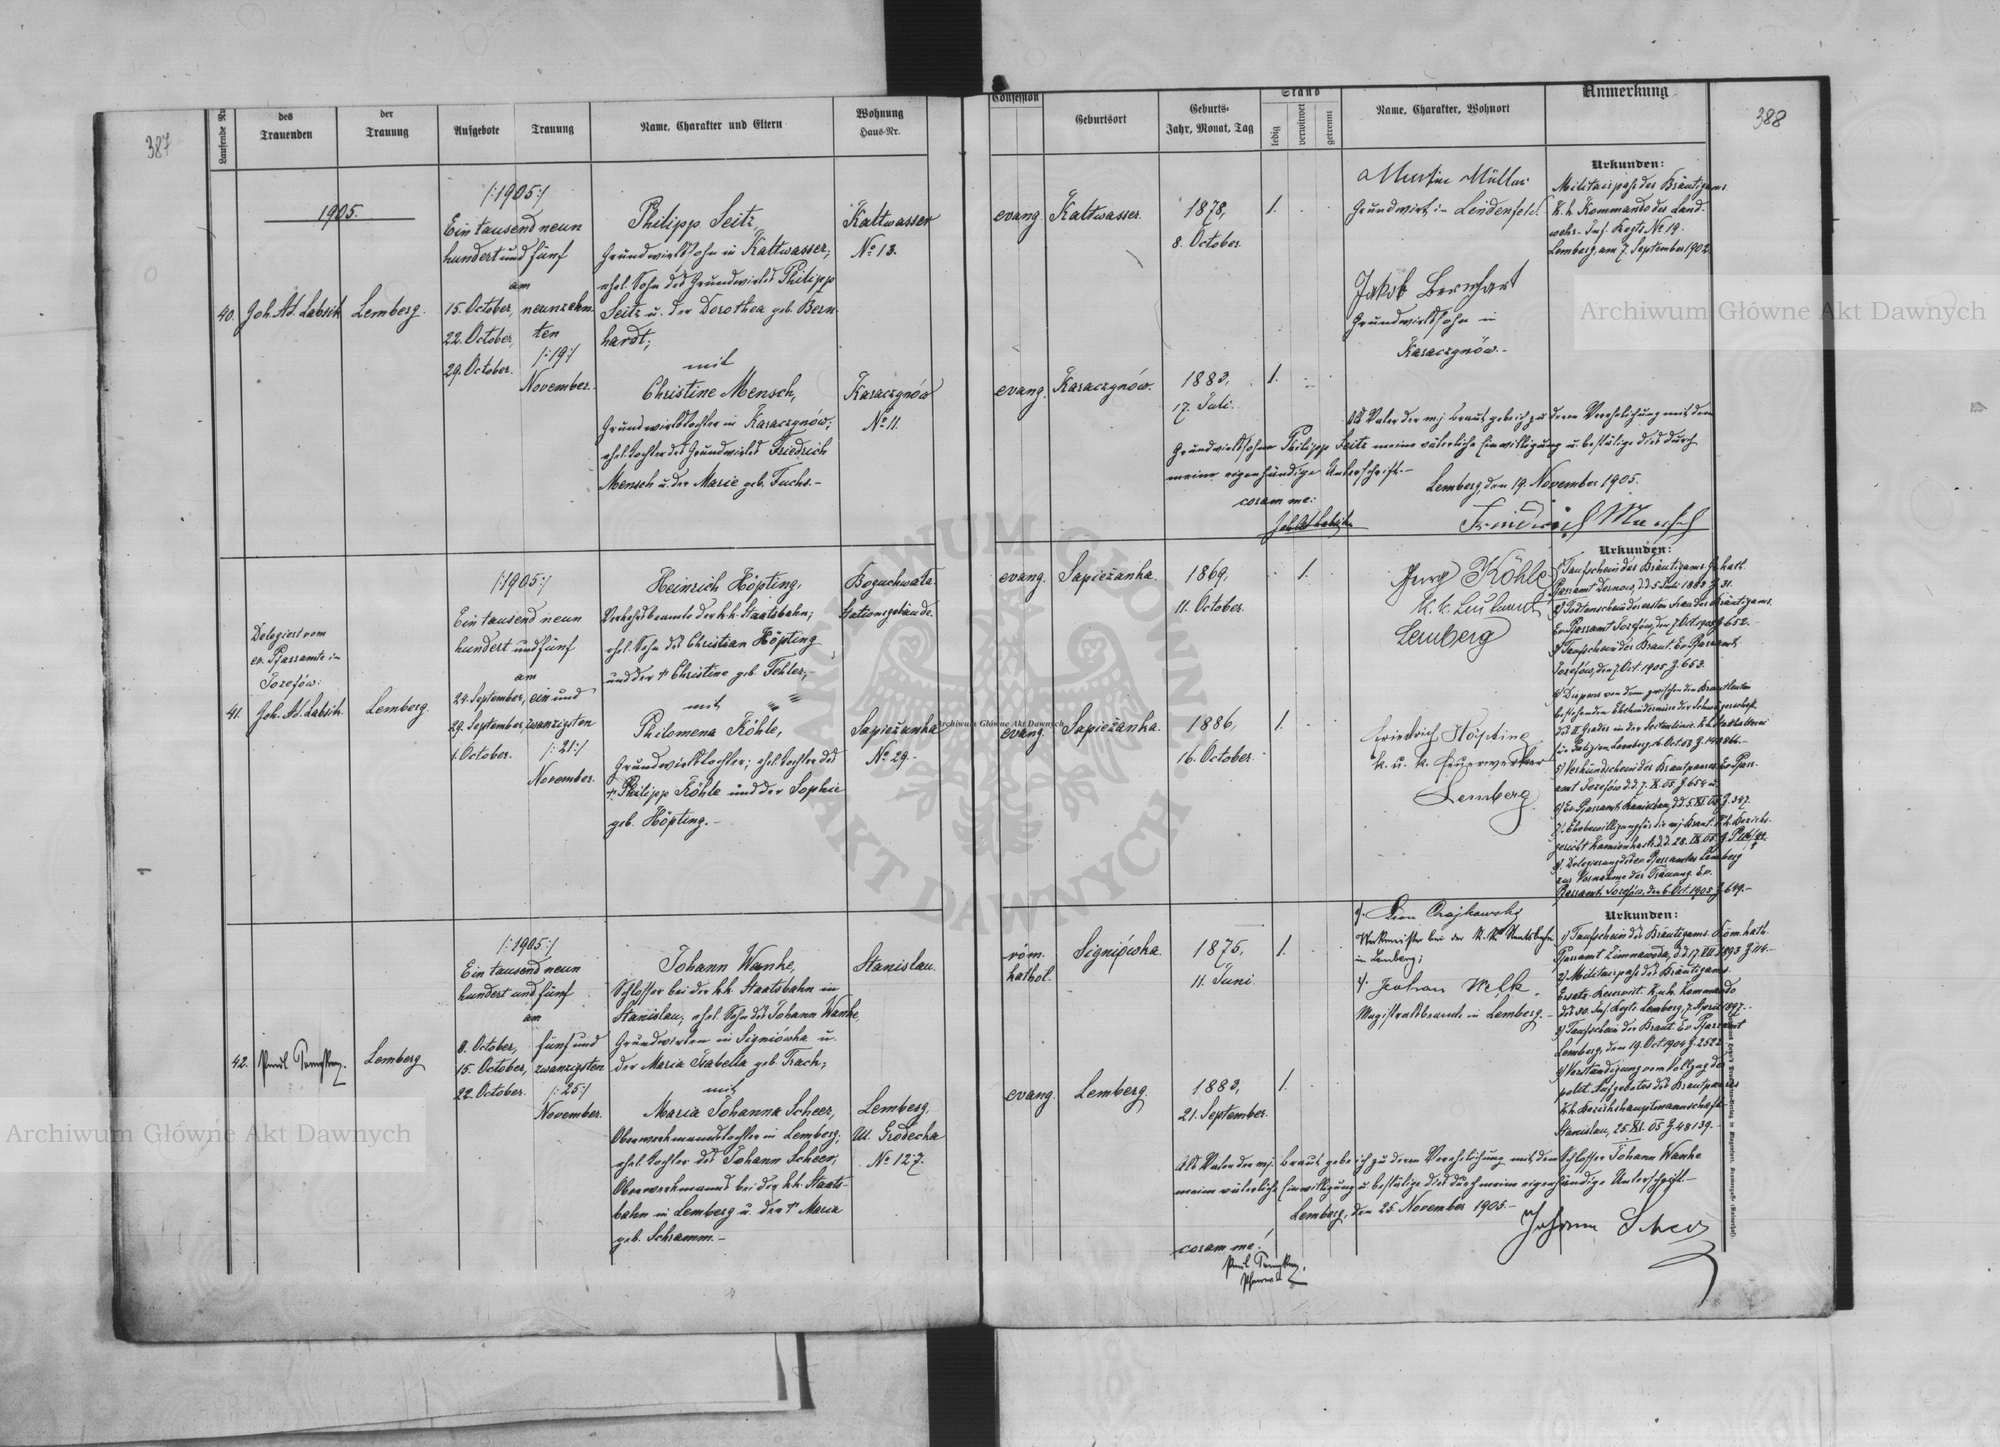 387
388
Laufende Nr.
des
Trauenden
der
Trauung
Aufgebote
Trauung
Name, Charakter und Eltern
Wohnung
Haus-Nr.
Confession
Geburtsort
Geburts-
Jahr, Monat, Tag
Stand
ledig
verwitwet
getrennt
Name, Charakter, Wohnort
Anmerkung
1905.
40.
Joh. Ad. Labsik
Lemberg.
/:1905:/
Ein tausend neun
hundert und fünf
am
15. October, neunzehn
22. October, ten
29. October. /:19:/
November.
Philipp Seitz,
Grundwirtssohn in Kaltwasser,
ehel. Sohn des Grundwirtes Philipp
Seitz u. der Dorothea geb. Bern
hardt;
mit
Christine Mensch,
Grundwirtstochter in Karaczynów,
ehel. Tochter des Grundwirtes Friedrich
Mensch u. der Marie geb. Fuchs.-
Kaltwasser
No 13.
Karaczynów
No 11.
evang. Kaltwasser.
1878,
8. October.
1.
evang. Karaczynów.
1883,
17. Juli.
1.
Martin Müller
Grundwirt in Lindenfeld.
Jakob Bernhart
Grundwirtssohn in
Karaczynów.-
Urkunden:
Militärpass des Bräutigams
K. k. Kommando des Land-
wehr-Inf. Regts No 19.
Lemberg, am 7. September 1902.
Als Vater der mj. Braut gebe ich zu deren Verehelichung mit dem
Grundwirtssohne Philipp Seitz meine väterliche Einwilligung u. bestätige dies durch
meine eigenhändige Unterschrift.-
Lemberg, den 19. November 1905.
coram me:
Joh. Ad. Labsik
Friedrich Mensch
41.
Delegiert vom
ev. Pfarramte in
Josefów:
Joh. Ad. Labsik
Lemberg.
/:1905:/
Ein tausend neun
hundert und fünf
am
24. September, ein und
29. September, zwanzigsten
1. October. /:21:/
November.
Heinrich Höpting,
Verkehrsbeamte der k.k. Staatsbahn;
ehel. Sohn des Christian Höpting
und der † Christine geb. Fehler,-
mit
Philomena Köhle,
Grundwirtstochter; ehel. Tochter des
† Philipp Köhle und der Sophie
geb. Höpting.-
Boguchwała
Stationsgebäude.
Sapieżanka
No 29.-
evang. Sapieżanka.
1869,
11. October.
1.
evang. Sapieżanka.
1886,
16. October.
1.
Köhle
k. k. Leutnant
Lemberg
Friedrich Höpting
k. u. k. Feuerwerker
Lemberg
Urkunden:
1) Taufschein des Bräutigams
2) Todtenschein der ersten Frau des Bräutigams.
Ev. Pfarramt Josefów, den 7. Oct. 1905 Z. 652.-
3) Taufschein der Braut. Ev. Pfarramt
Josefów, den 7 Oct. 1905 Z. 653.
4) Dispens von dem zwischen den Brautleuten
bestehenden Ehehindernisse der Schwägerschaft
des II Grades in der Seitenlinie. K.k. Statthalterei
5) Verkündschein des Brautpaares. Ev. Pfarr-
amt Josefów
7) Ehebewilligung für die mj. Braut. K.k. Bezirks-
gericht
8) Delegierung des ev. Pfarramtes Lemberg
zur Vornahme der Trauung. Ev.
Pfarramt Josefów, den 6. Oct. 1905 Z. 649.-
42.
Lemberg
/:1905:/
Ein tausend neun
hundert und fünf
am
8. October, fünf und
15. October, zwanzigsten
22. October. /:25:/
November.
Johann Wanke,
Schlosser bei der k.k. Staatsbahn in
Stanislau; ehel. Sohn des Johann Wanke,
Grundwirten in Signiówka u.
der Maria Isabella geb. Trach;
mit
Maria Johanna Scheer,
Oberwerkmannstochter in Lemberg,
ehel. Tochter des Johann Scheer,
Oberwerkmanns bei der k.k. Staats-
bahn in Lemberg u. der † Maria
geb. Schramm.-
Stanislau.
Lemberg,
Ul. Grodecka
No 127.
röm.
kathol.
Signiówka.
1875,
11. Juni.
1.
evang. Lemberg.
1883,
21. September.
1.
Werkmeister bei der K.K. Staatsbahn
in Lemberg;
Magistratsbeamte in Lemberg.-
Urkunden:
1) Taufschein des Bräutigams. Röm. kath.
Pfarramt Zimnawoda,
2) Militärpass des Bräutigams.
Ersatz-Reservist. K.u.k. Kommando
des 30. Inf. Regts Lemberg, 7. April 1897.-
3) Taufschein der Braut. Ev. Pfarramt
Lemberg, den 19. Oct. 1904 Z. 2522
4) Verständigung vom Vollzug des
polit. Aufgebotes des Brautpaares
K.k. Bezirkshauptmannschaft
Stanislau, 25. XI. 05 Z. 48139.-
Als Vater der mj. Braut gebe ich zu deren Verehelichung mit dem Schlosser Johann Wanke
meine väterliche Einwilligung u. bestätige dies durch meine eigenhändige Unterschrift.-
Lemberg, den 25. November 1905.-
coram me:
Johann Scheer
Archiwum Główne Akt Dawnych
Archiwum Główne Akt Dawnych
Archiwum Główne Akt Dawnych
ARCHIWUM GŁÓWNE AKT DAWNYCH